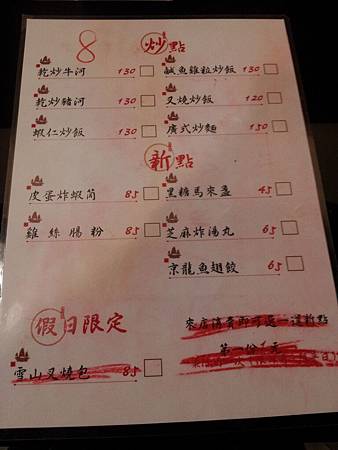 8
炒點
乾炒牛河 130
鹹魚雞粒炒飯 130
乾炒豬河 130
叉燒炒飯 120
蝦仁炒飯 130
廣式炒麵 150
新點
皮蛋炸蝦筒 85
黑糖馬來盞 45
雞絲腸粉 85
芝麻炸湯丸 65
京龍魚翅餃 65
假日限定
來店消費即可選一道新點
第一份1元
雪山叉燒包 85